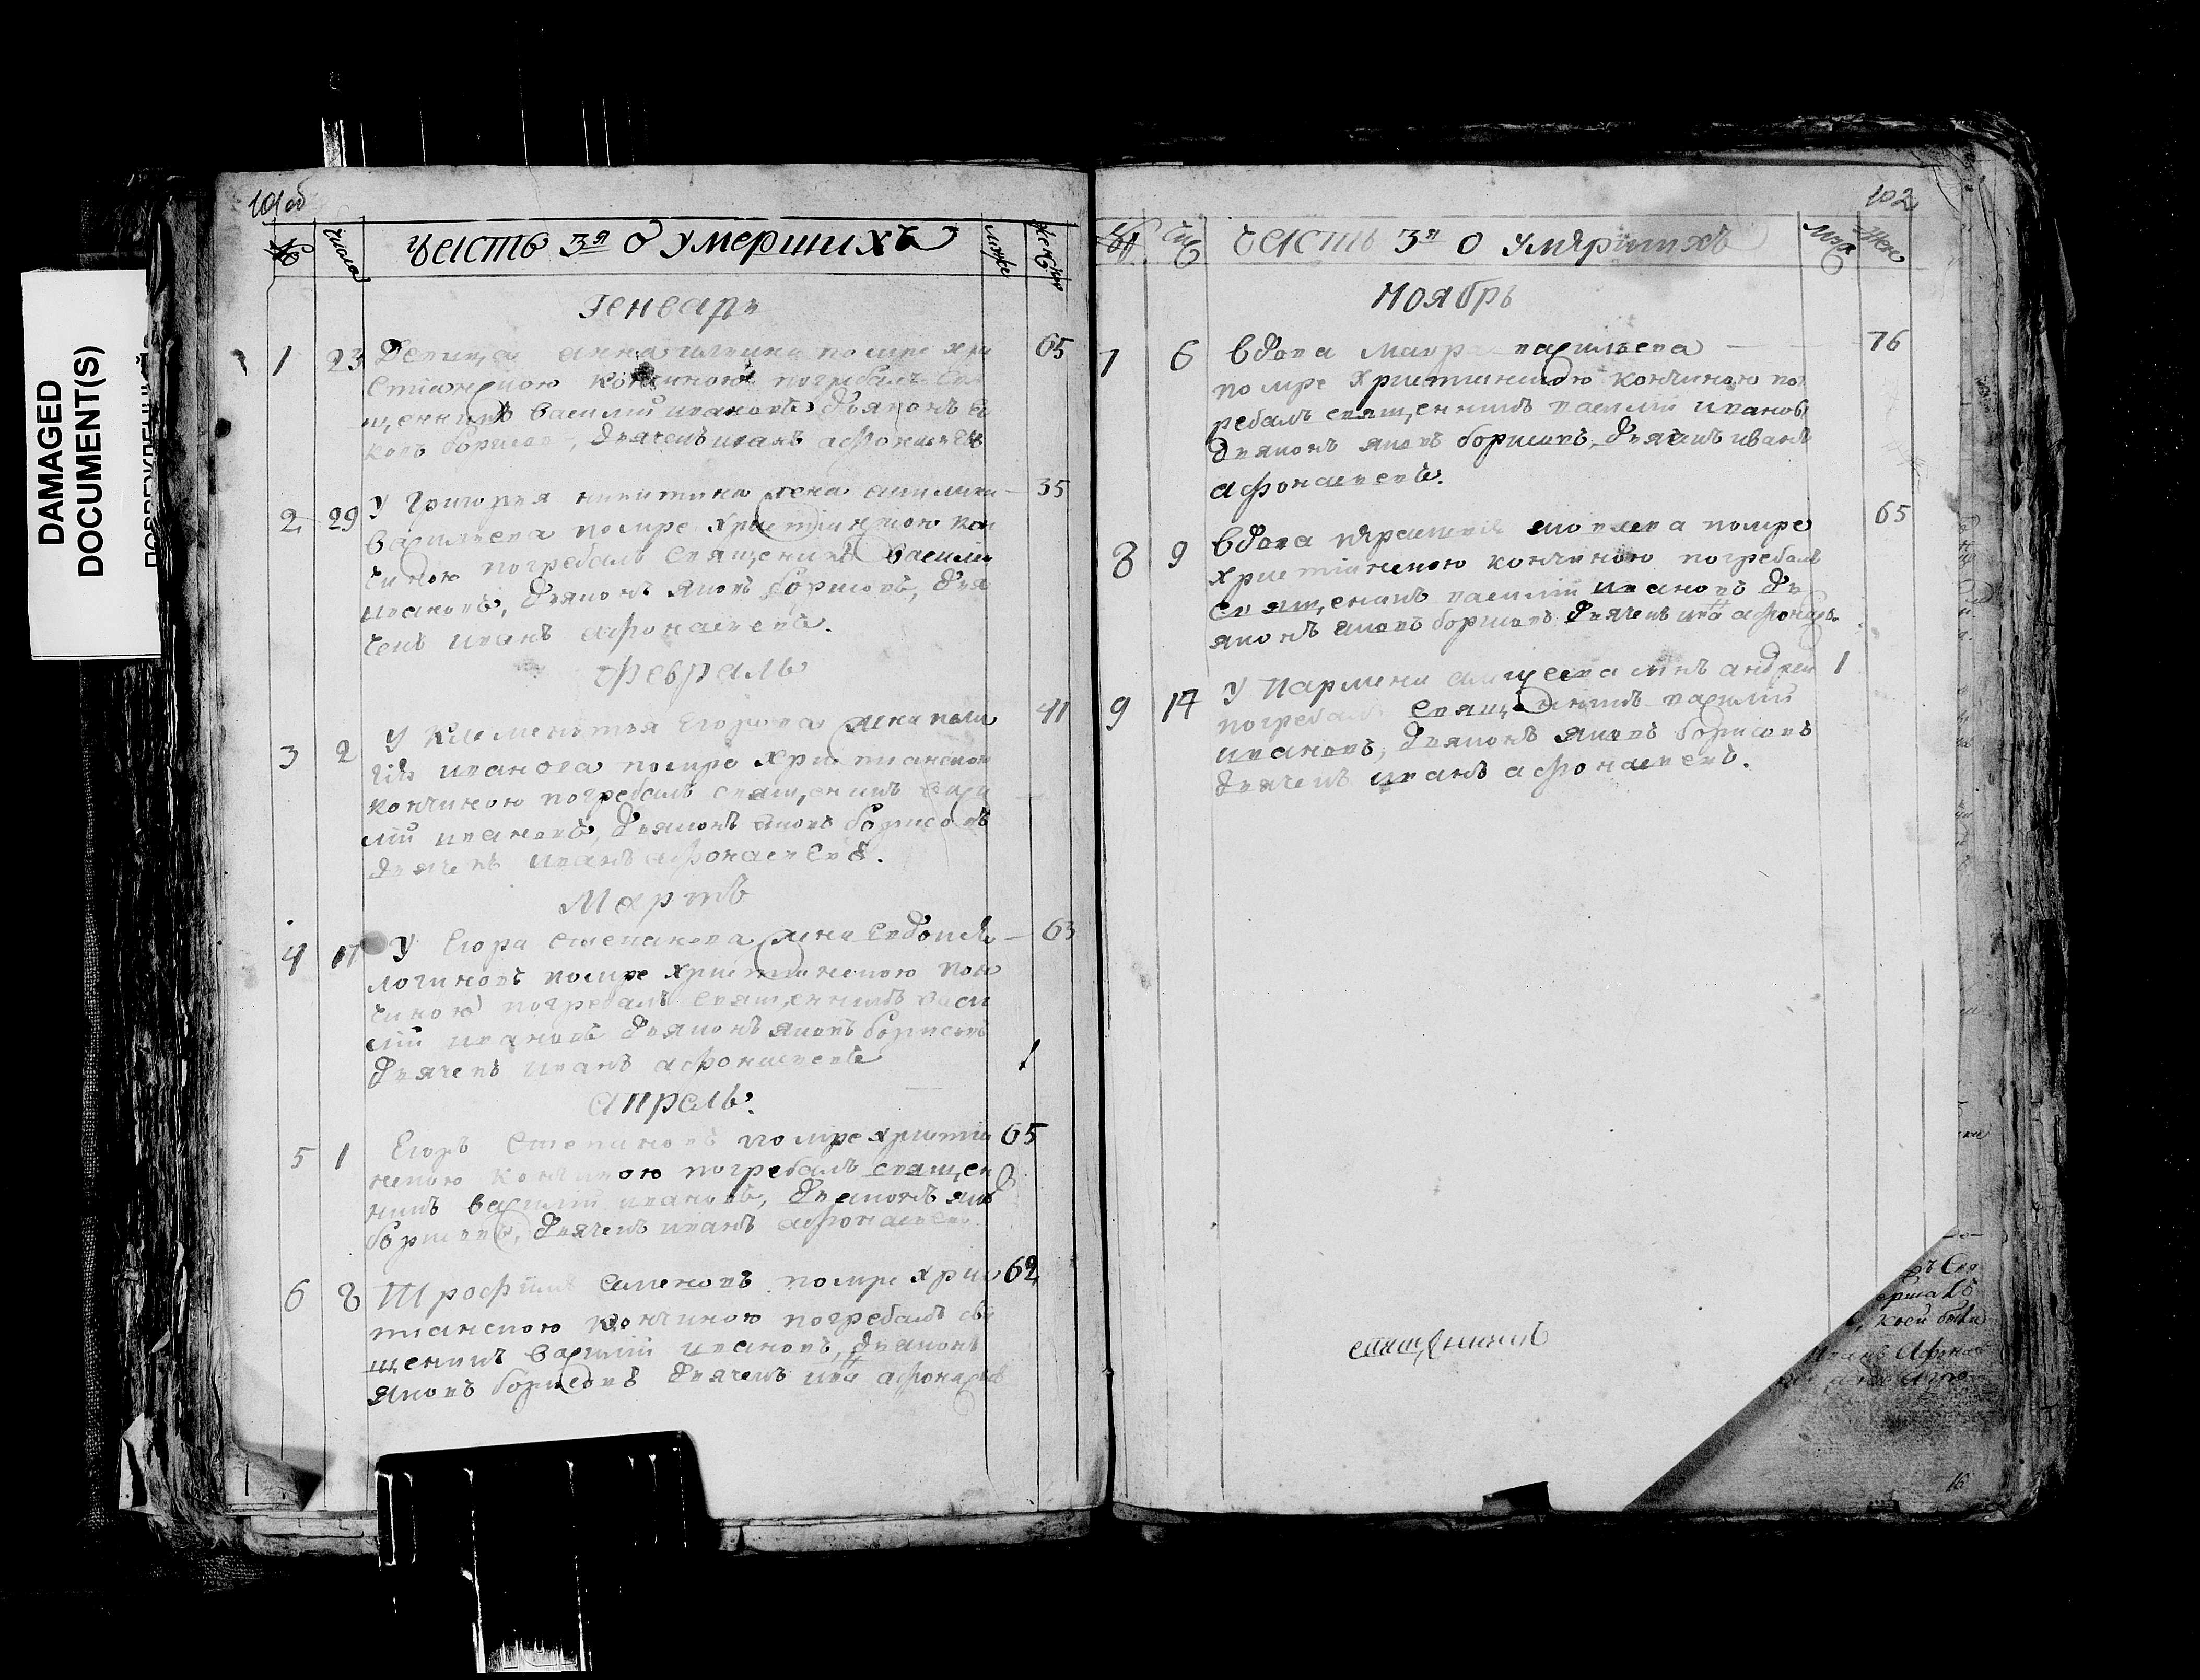 DAMAGED
DOCUMENT(S)
101 об
№ числа Часть 3я о умершихъ муже женска
Генварь
1 23 Девица анна помре хри 65
стианскою кончиною погребалъ свя
щенникъ василий ивановъ дьяконъ я
ковъ борисовъ, дьячекъ иванъ афонасьевъ
2 29 У Григорья никитина жена акилина 35
васильева помре христианскою кон
чиною погребалъ священникъ василий
ивановъ, дьяконъ яковъ борисовъ, дья
чекъ иванъ афонасьевъ.
Февраль
3 2 У Клементья Егорова жена пела 41
гия иванова помре христианскою
кончиною погребалъ священникъ васи
лий ивановъ, дьяконъ яковъ борисовъ
дьячекъ иванъ афонасьевъ.
Мартъ
4 17 У Егора степанова жена Евдокия 63
логиновъ помре христианскою кон
чиною погребалъ священникъ васи
лий ивановъ дьяконъ яковъ борисовъ
дьячекъ иванъ афонасьевъ
апрель.
5 1 Егоръ Степановъ помре християн 65
нскою кончиною погребалъ священ
никъ василий ивановъ, дьяконъ яковъ
борисовъ, дьячекъ иванъ афонасьевъ
6 8 Трофимъ семеновъ помре хрис 62
тианскою кончиною погребалъ свя
щенникъ василий ивановъ, дьяконъ
яковъ борисовъ дьячекъ иванъ афонасьевъ
102
Часть 3я о умяршихъ
Ноябрь
7 6 Вдова мавра васильева 76
помре християнскою кончиною пог
ребалъ священникъ василий ивановъ
дьяконъ яковъ борисовъ, дьячекъ иванъ
афонасьевъ.
8 9 Вдова яковлева помре 65
християнскою кончиною погребалъ
священникъ василий ивановъ дь
яконъ яковъ борисовъ дьячекъ иванъ афонасьевъ
9 14 У Пармена сынъ андрей 1
погребалъ священникъ василий
ивановъ, дьяконъ яковъ борисовъ
дьячекъ иванъ афонасьевъ.
священникъ